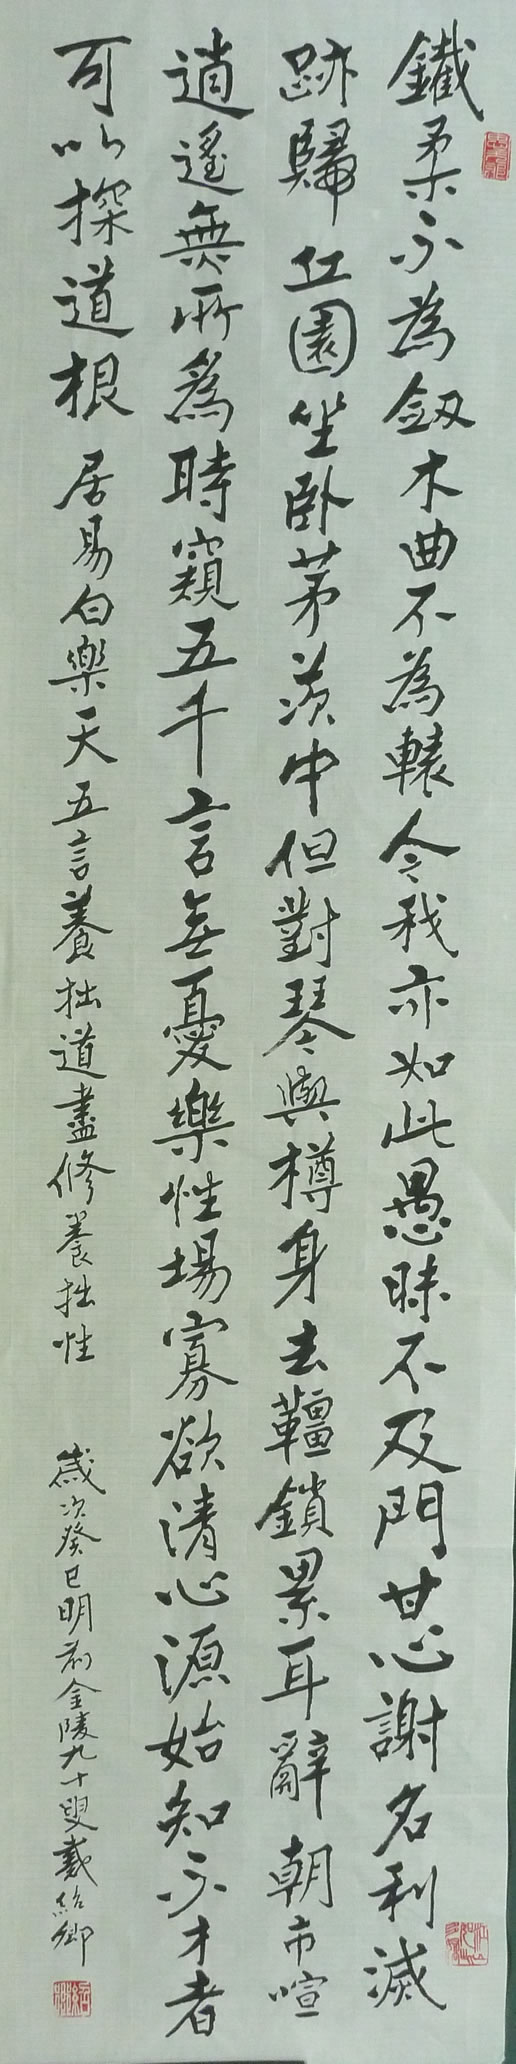 鐵柔不為劔木曲不為轅今我亦如此愚昧不及門甘心謝名利滅
跡歸丘園坐卧茅茨中但對琴與樽身去韁鎖累耳辭朝市喧
逍遙無所為時窺五千言無憂樂性場寡欲清心源始知不才者
可以探道根 居易白樂天五言養拙道盡修養拙性 歲次癸巳明前金陵九十叟戴紹卿